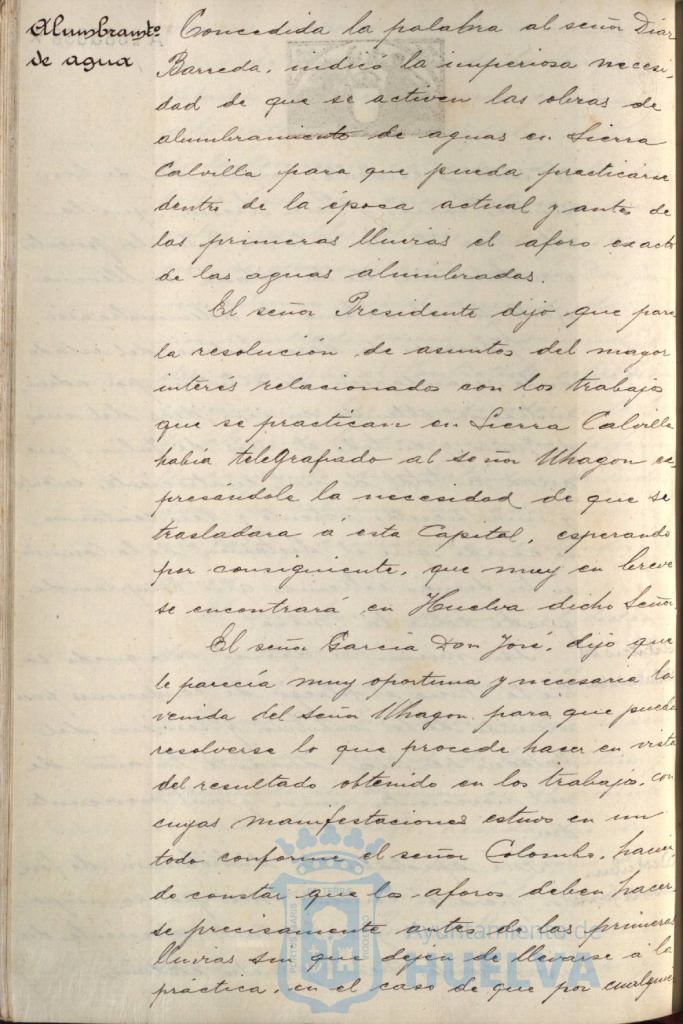 Alumbramto.
de agua
Concedida la palabra al señor Díaz
Barreda, indicó la imperiosa necesi-
dad de que se activen las obras de
alumbramiento de aguas en Sierra
Calvilla para que pueda practicarse
dentro de la época actual y antes de
las primeras lluvias el aforo exacto
de las aguas alumbradas.
El señor Presidente dijo que para
la resolución de asuntos del mayor
interés relacionados con los trabajos
que se practican en Sierra Calvilla
había telegrafiado al señor Uhagon ex-
presándole la necesidad de que se
trasladara á esta Capital, esperando
por consiguiente, que muy en breve
se encontrará en Huelva dicho Señor.
El señor García Don José, dijo que
le parecía muy oportuna y necesaria la
venida del señor Uhagon para que pueda
resolverse lo que procede hacer en vista
del resultado obtenido en los trabajos, con
cuyas manifestaciones estuvo en un
todo conforme el señor Colombo, hacien-
do constar que los aforos deben hacer-
se precisamente antes de las primeras
lluvias sin que dejen de llevarse á la
práctica, en el caso de que por cualquier
Ayuntamiento de
HUELVA